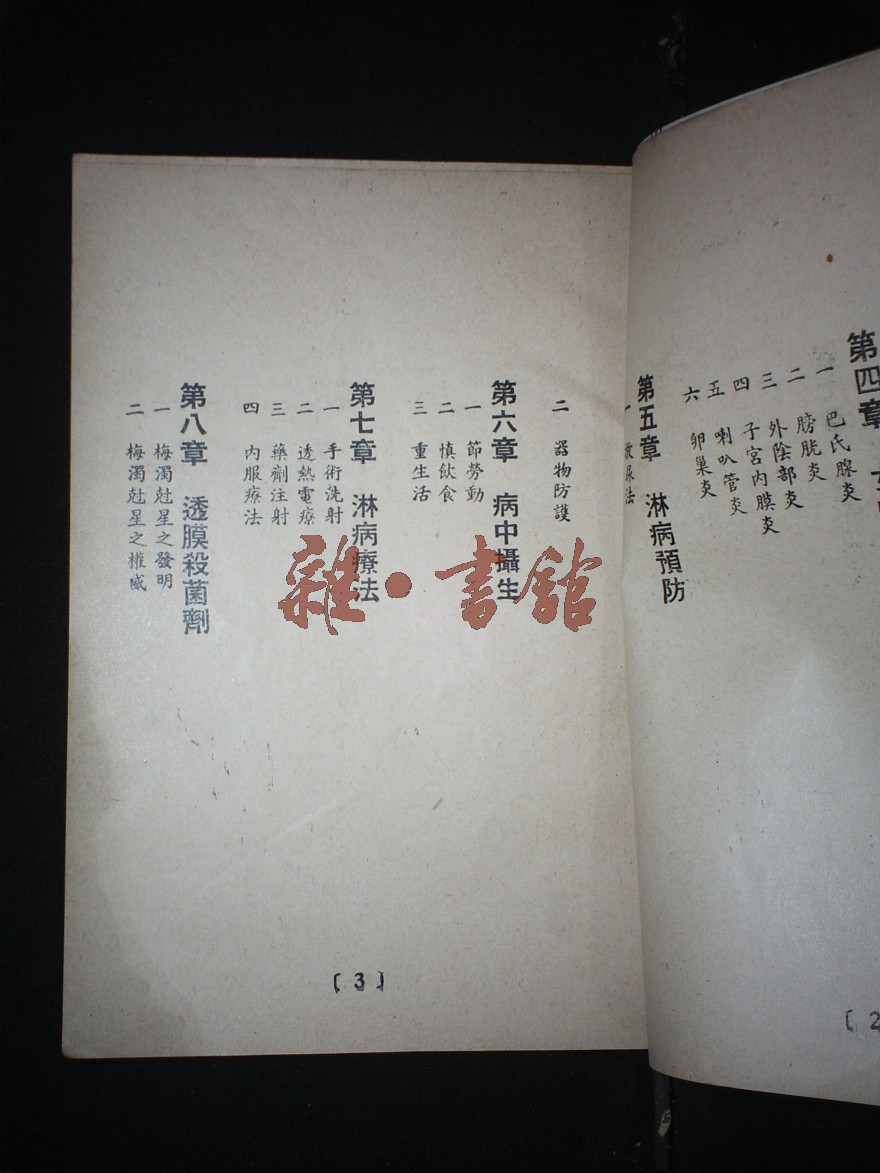 第四章
一 巴氏腺炎
二 膀胱炎
三 外陰部炎
四 子宮內膜炎
五 喇叭管炎
六 卵巢炎
第五章 淋病預防
二 器物防護
第六章 病中攝生
一 節勞動
二 慎飲食
三 重生活
第七章 淋病療法
一 手術洗射
二 透熱電療
三 藥劑注射
四 內服療法
第八章 透膜殺菌劑
一 梅濁尅星之發明
二 梅濁尅星之權威
〔3〕
〔2
雜·書館